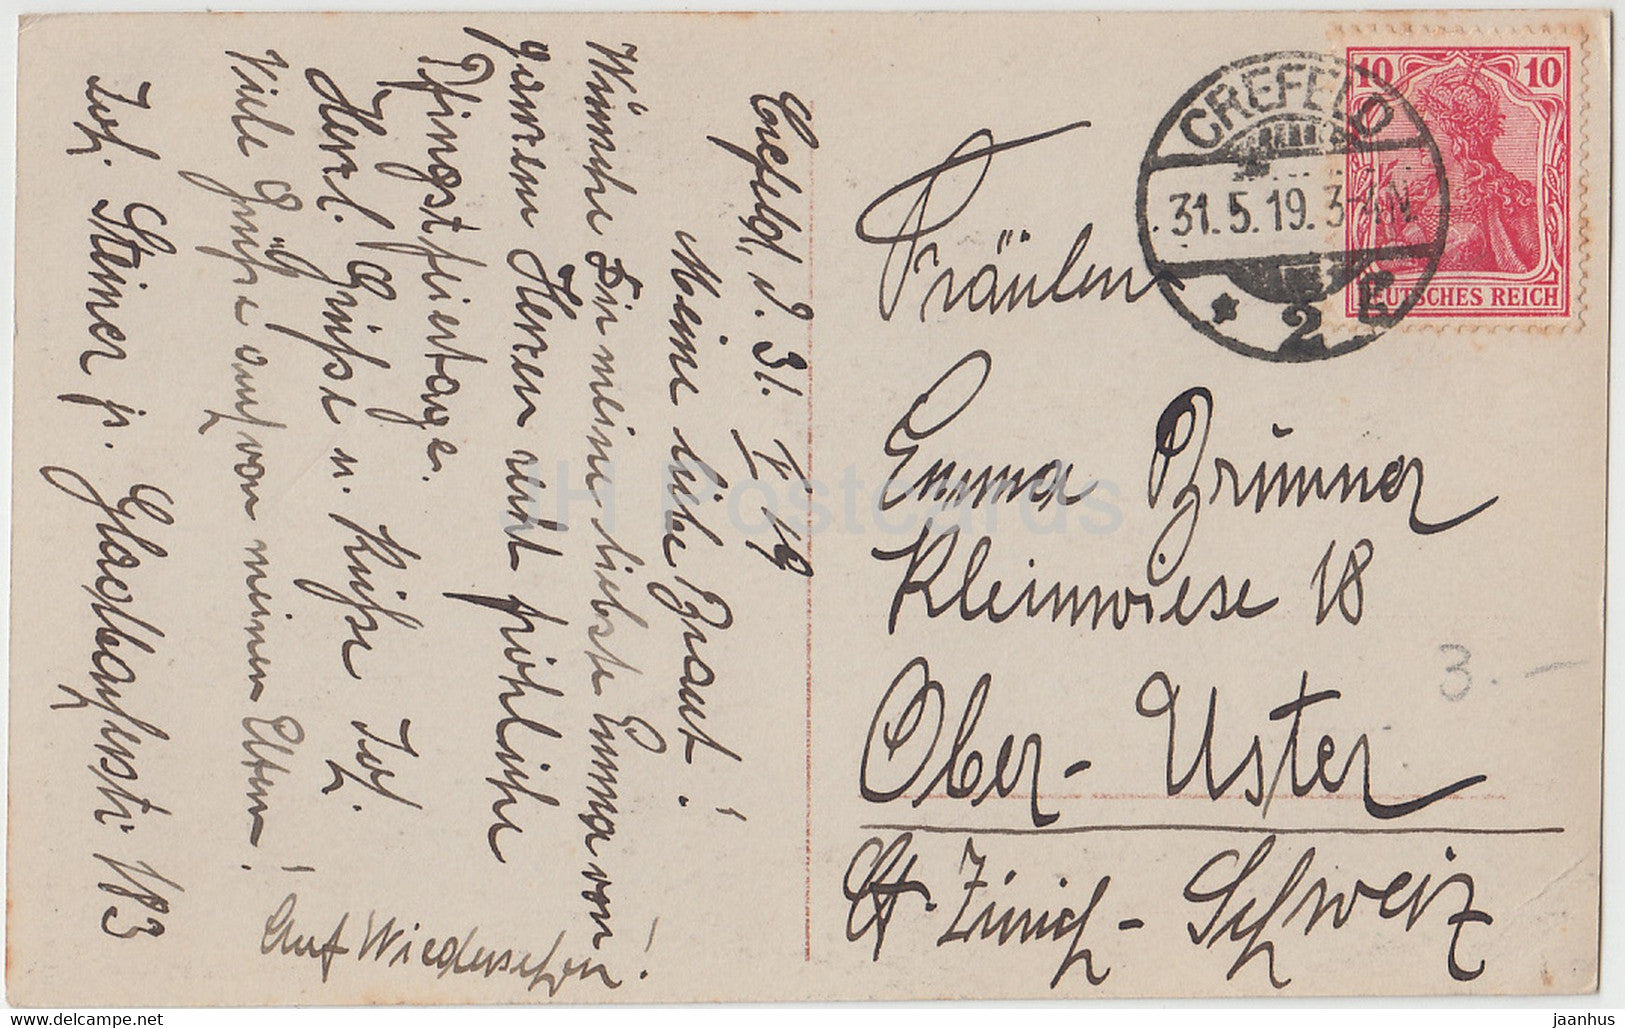 Crefeld, d. 31. V 19
Meine liebe Braut!
Wünsche Dir meine liebste Emma von
ganzem Herzen recht fröhliche
Pfingstfeiertage.
Herzl. Grüsse u. Küsse Jos.
Viele Grüsse auch von meinen Eltern!
Jos. Steiner jr. Gladbacherstr. 183
Auf Wiedersehen!
CREFELD
31.5.19. 3-4N.
* 2
10 10
DEUTSCHES REICH
Fräulein
Emma Brunner
Kleinwiese 18
Ober-Uster
Kt. Zürich-Schweiz
3.-
JH Postcards
jaanhus - www.delcampe.net